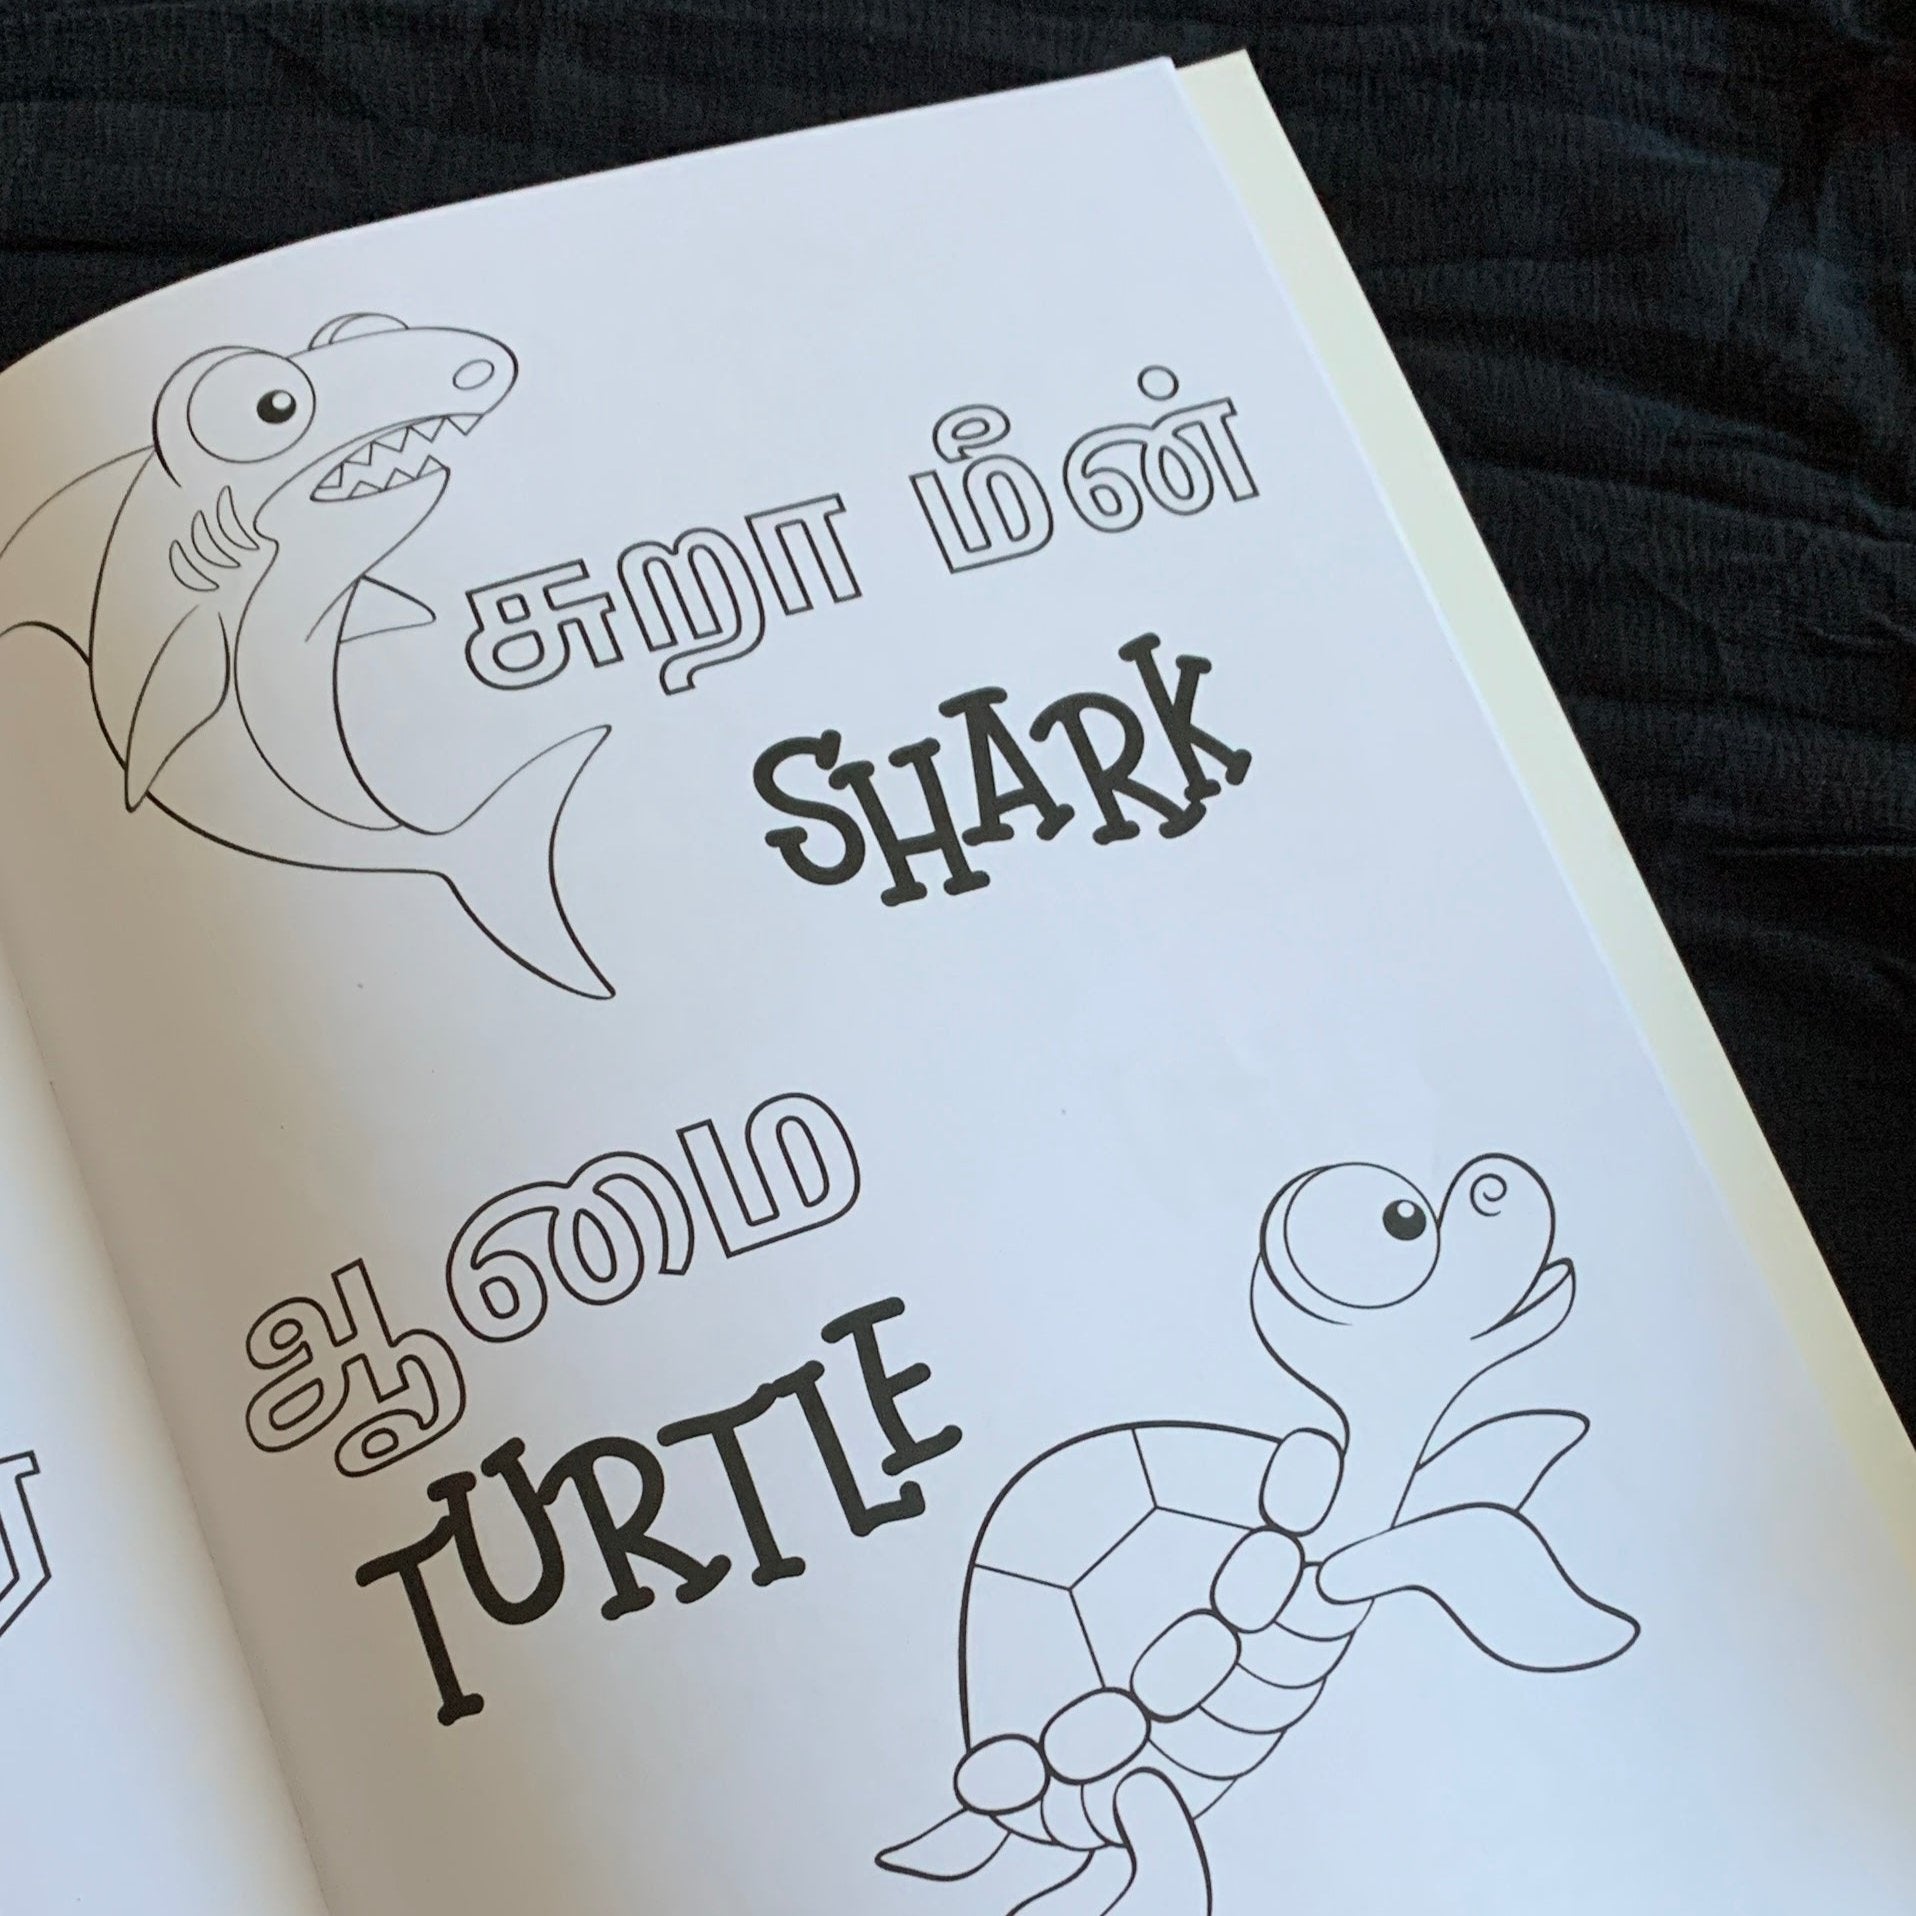 சுறா மீன்
SHARK
ஆமை
TURTLE